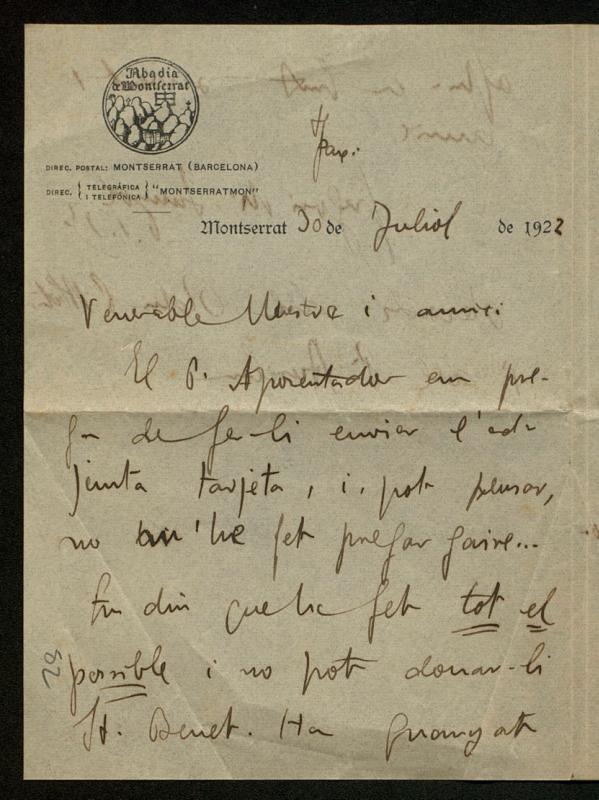 Abadia
de Montserrat
DIREC. POSTAL: MONTSERRAT (BARCELONA)
DIREC. { TELEGRÁFICA I TELEFÓNICA } "MONTSERRATMON"
Pax.
Montserrat 30 de Juliol de 1922
Venerable Mestre i amic:
El P. Aposentador em pre-
ga de fer-li enviar l'ad-
junta tarjeta, i, pot pensar,
no m'he fet pregar gaire...
Em diu que ha fet tot el
possible i no pot donar-li
St. Benet. Ha guanyat
52